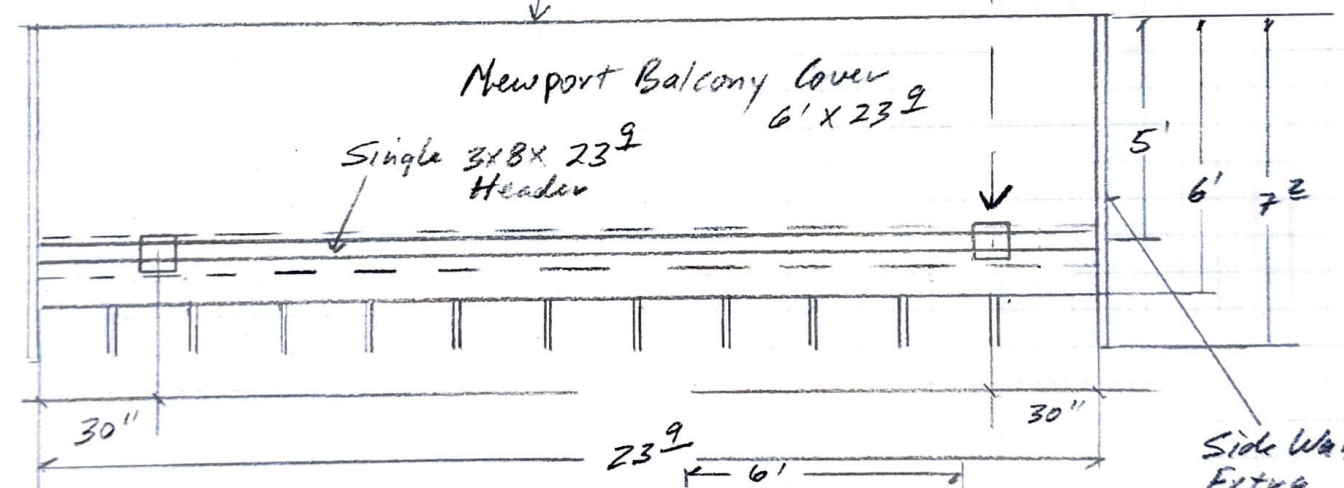 Newport Balcony Cover
6' x 23 9
Single 3x8x 23 9
Header
5'
6'
7 2
30"
30"
23 9
6'
Side Wa
Extra